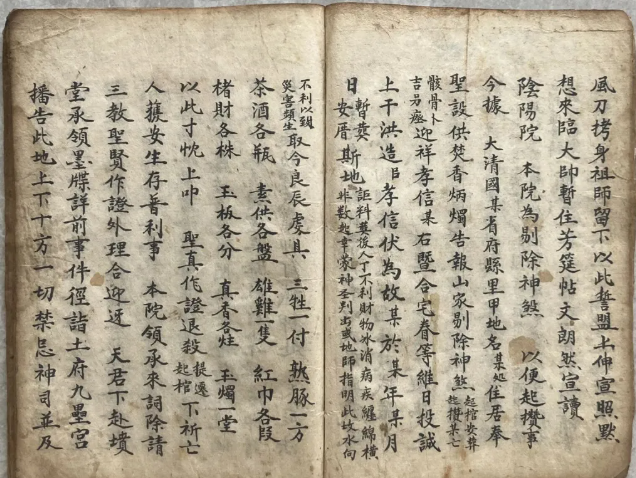 風刀拷身祖師留下以此誓盟上伸宣照默
想來臨大師暫住芳筵帖文朗然宣讀
陰陽院 本院為剔除神煞 以便起攢事
今據 大清國某省府縣里甲地名某处住居奉
聖設供焚香炳燭告報山家剔除神煞起棺安葬起攢某亡
骸骨卜吉另瘞迎祥孝信某右暨合宅眷等維日投誠
上干洪造㫖孝信伏為故某於某年某月
日暫葬安厝斯地詎料葬後人丁不利財物冰消病疾纏綿橫非數起幸蒙神圣判出或地師指明此坟水向
不利以致災害頻生取今良辰虔具 三牲一付 熟豚一方
茶酒各瓶 素供各盤 雄雞隻 紅巾各段
楮財各株 玉板各分 真香各炷 玉燭一堂
以此寸忱上叩 聖真作證退殺提遷起棺下祈亡
人獲安生存普利事 本院領承來詞除請
三教聖賢作證外理合迎迓 天君下赴墳
堂承領墨牒詳前事件徑詣土府九壘宮
播告此地上下十方一切禁忌神司並及